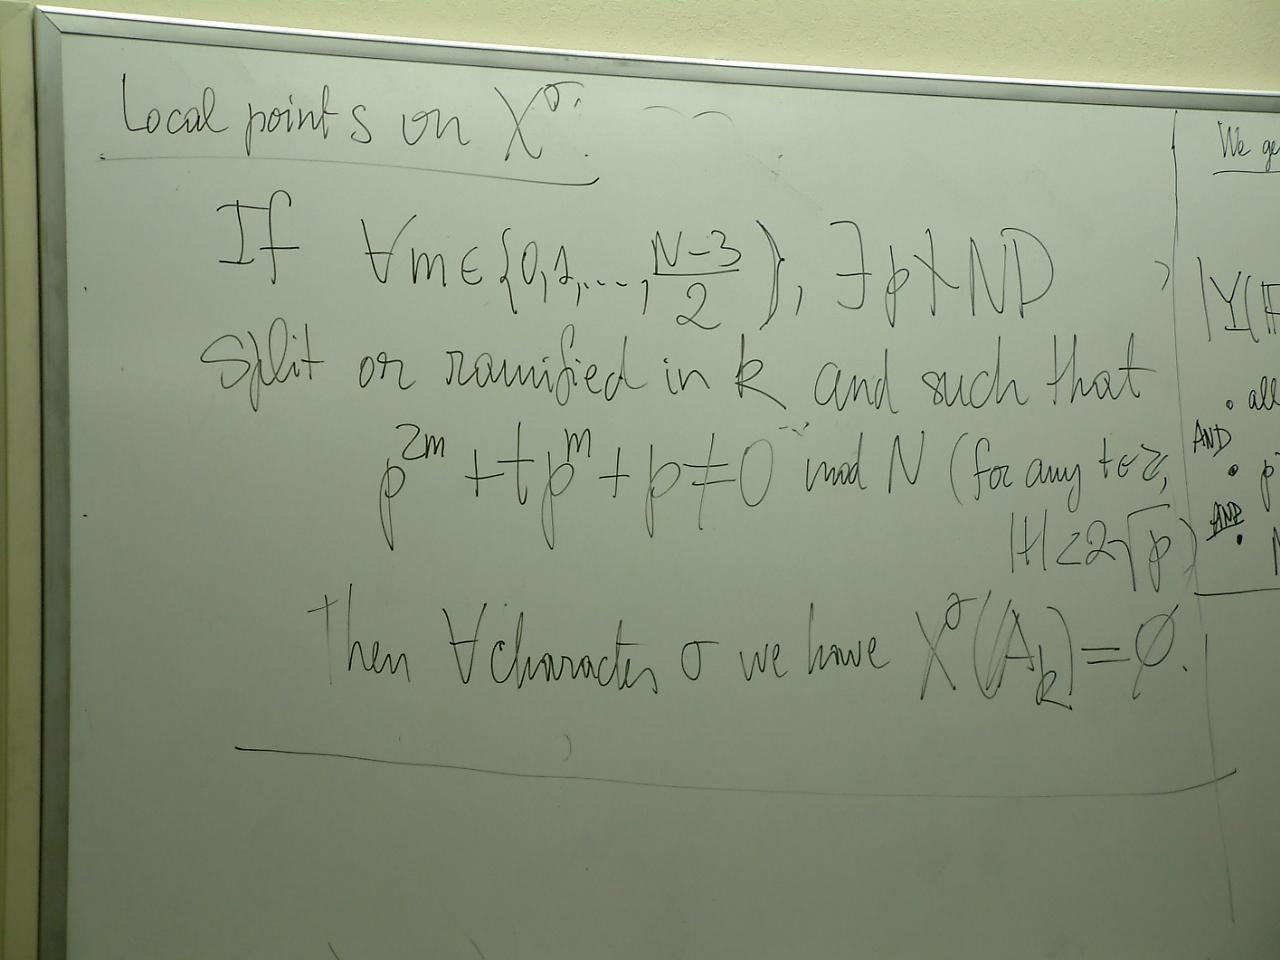 Local points on X^σ:
If ∀m∈{0,1,...,(N-3)/2}, ∃ p∤ND
split or ramified in k and such that
p^{2m} + tp^m + p ≠ 0 mod N (for any t∈ℤ,
|t|<2√p)
Then ∀ character σ we have X^σ(A_k) = ∅.
We ge
|Y(F
• all
AND
• p
AND
•